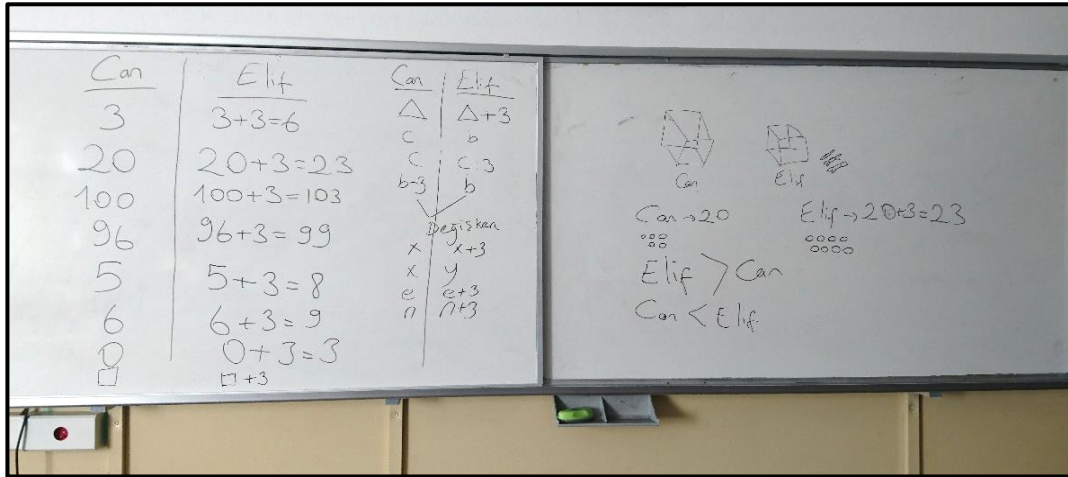 Can Elif
3 3+3=6
20 20+3=23
100 100+3=103
96 96+3=99
5 5+3=8
6 6+3=9
0 0+3=3
□ □+3
Can Elif
△ △+3
c b
c c+3
b-3 b
Değişken
x x+3
x y
e e+3
n n+3
Can Elif
Can→20 Elif→20+3=23
Elif > Can
Can < Elif